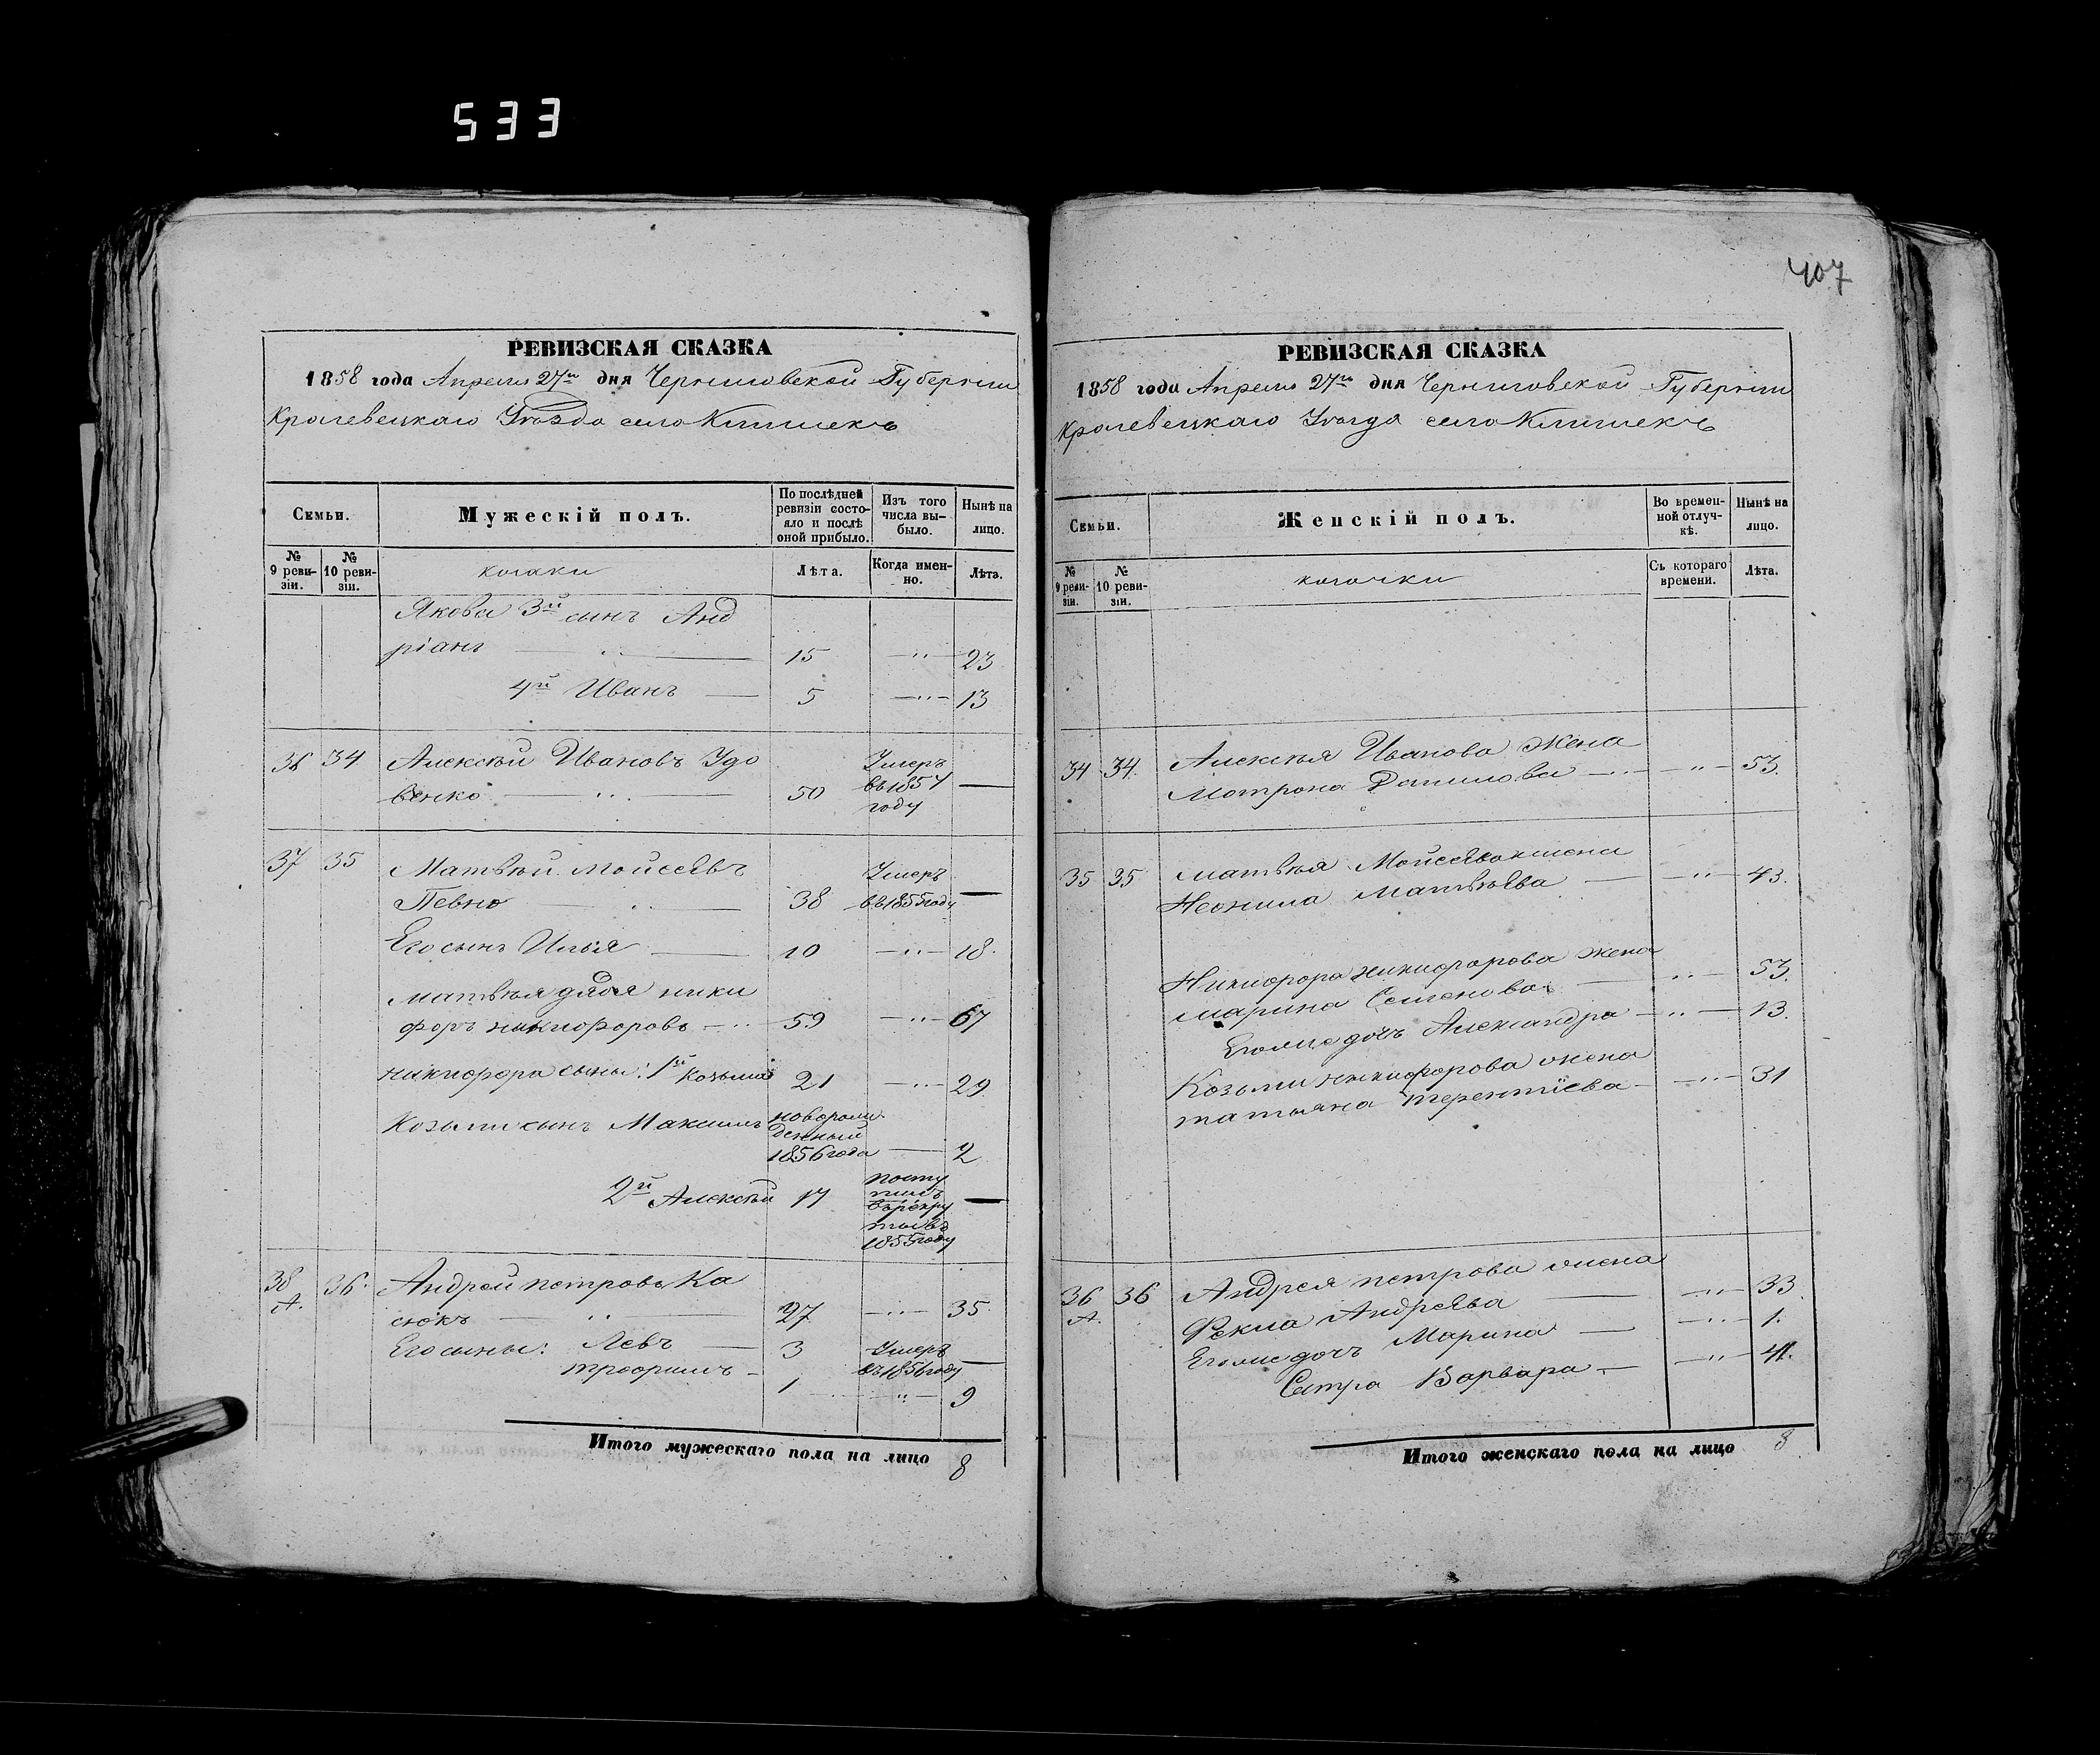 533
407
РЕВИЗСКАЯ СКАЗКА
1858 года Апреля 27го дня Черниговской Губернии
Кролевецкаго Уѣзда село Клишекъ
Семьи.
Мужескій полъ.
По послѣдней ревизіи состояло и послѣ оной прибыло.
Изъ того числа выбыло.
Нынѣ на лицо.
№ 9 ревизіи.
№ 10 ревизіи.
козаки
Лѣта.
Когда именно.
Лѣта.
Якова 3й сынъ Анд
ріанъ 15 —"— 23
4й Иванъ — 5 —"— 13
36 34 Алексѣй Ивановъ Удо
венко — " — 50 Умеръ въ 1857 году —
37 35 Матвѣй Мойсеѣвъ
Певно — " — 38 Умеръ въ 1855 году —
Его сынъ Илья — 10 —"— 18.
Матвѣя дядя ники
форъ никифоровъ —"— 59 —"— 67
никифора сыны: 1й Козьма 21 —"— 29
Козьми сынъ Максимъ новорожденный 1856 года — 2
2й Алексѣй 17 поступилъ въ рекруты въ 1855 году —
38 А. 36. Андрей петровъ Ка
сюкъ — " — 27 —"— 35.
Его сыны: Левъ — 3 Умеръ въ 1856 году —
трофимъ — 1 —"— 9
Итого мужескаго пола на лицо 8
РЕВИЗСКАЯ СКАЗКА
1858 года Апреля 27го дня Черниговской Губернии
Кролевецкаго Уѣзда село Клишекъ
Семьи.
Женскій полъ.
Во временной отлучкѣ.
Нынѣ на лицо.
№ 9 ревизіи.
№ 10 ревизіи.
козачки
Съ котораго времени.
Лѣта.
34 34. Алексѣя Иванова Жена
Мотрона Данилова —"— —"— 53.
35 35 матвѣя Мойсеѣва жена
Неонила Матвѣѣва — —"— 43.
Никифора никифорова жена
марина Семенова — —"— 53.
Его же дочь Александра —"— 13.
Козьми никифорова жена
татьяна терентіева — —"— 31
36 А. 36 Андрея петрова жена
Фекла Андреѣва — —"— 33.
Его же дочь Марина — —"— 1.
Сестра Варвара — —"— 41.
Итого женскаго пола на лицо 8